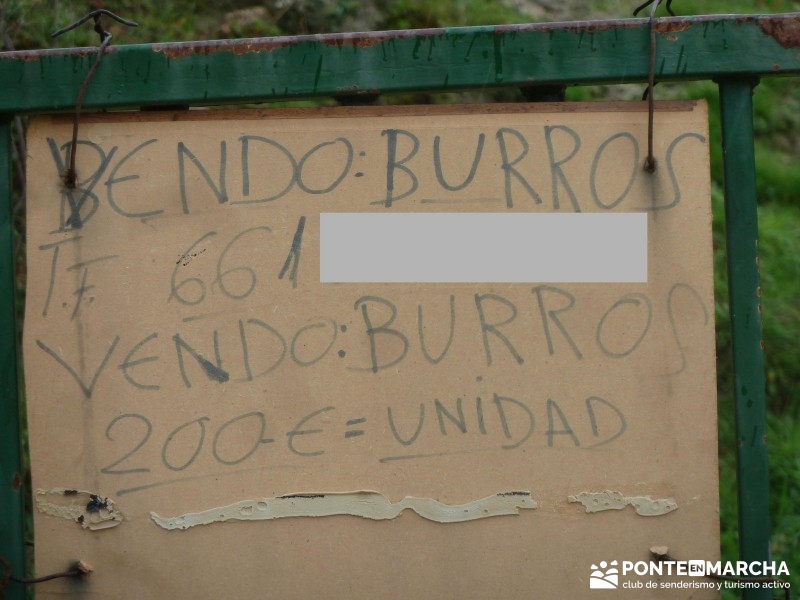 VENDO: BURROS
T.F. 661
VENDO: BURROS
200-€ = UNIDAD
PONTE EN MARCHA
club de senderismo y turismo activo